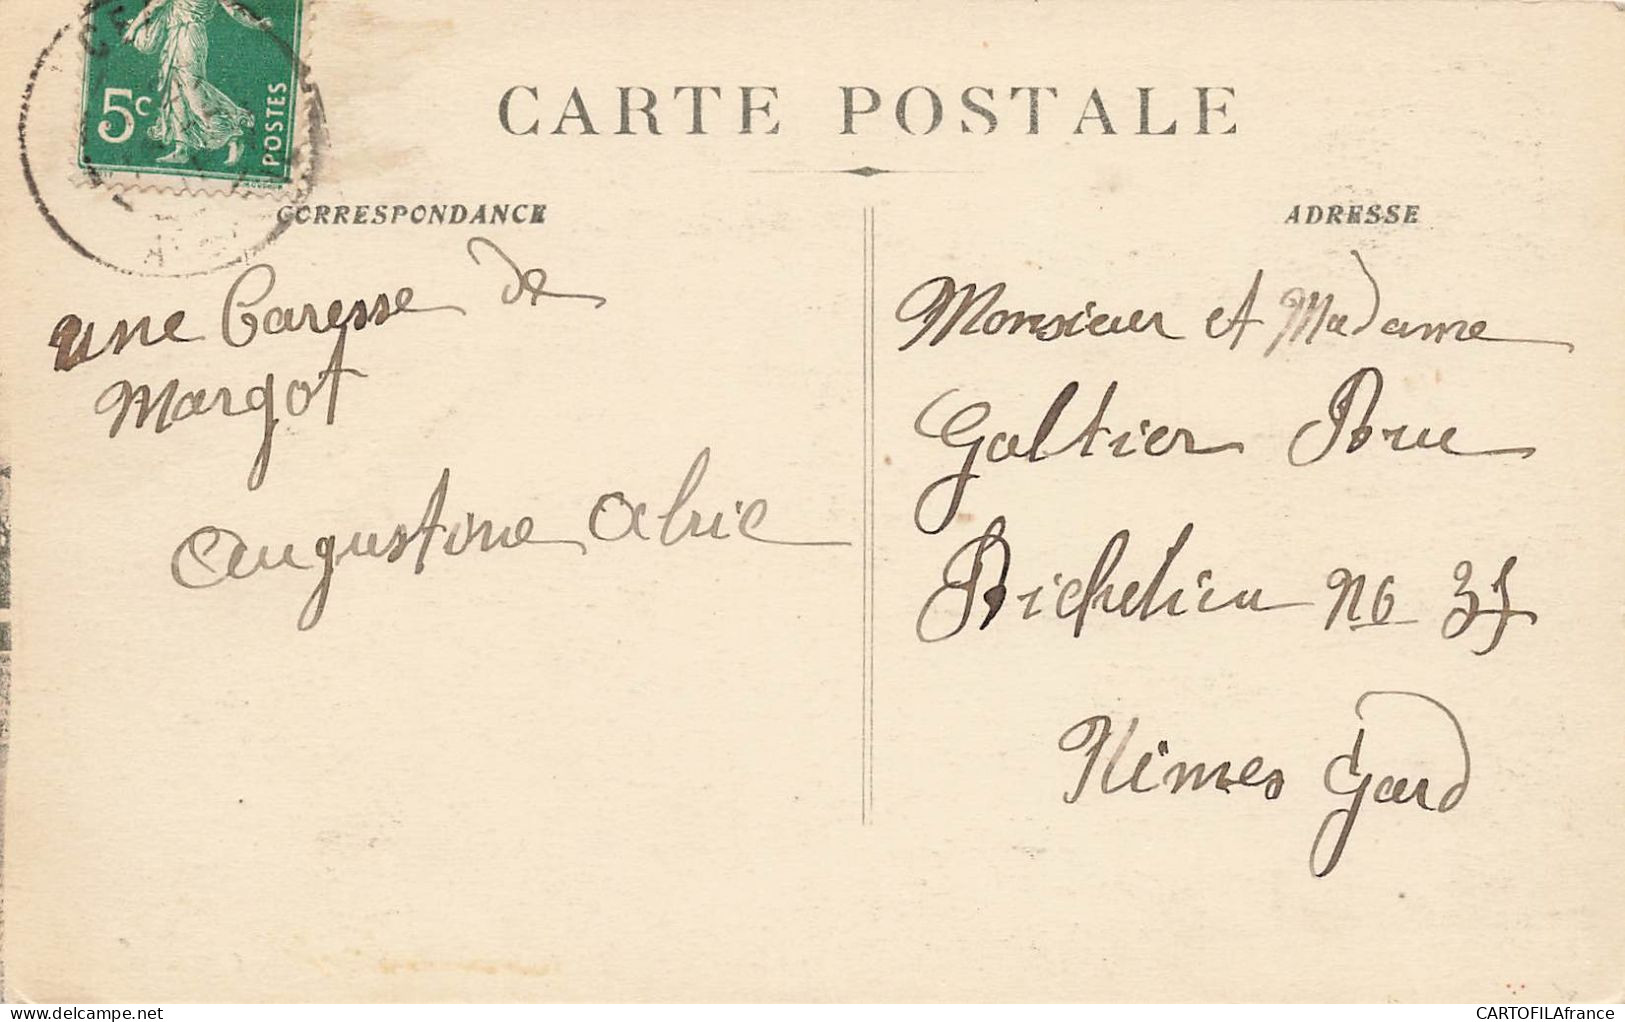 5c
POSTES
CARTE POSTALE
CORRESPONDANCE
une Caresse de
Margot
Augustine Alric
ADRESSE
Monsieur et Madame
Galtier Rue
Richelieu No 37
Nîmes Gard
delcampe.net
CARTOFILAfrance